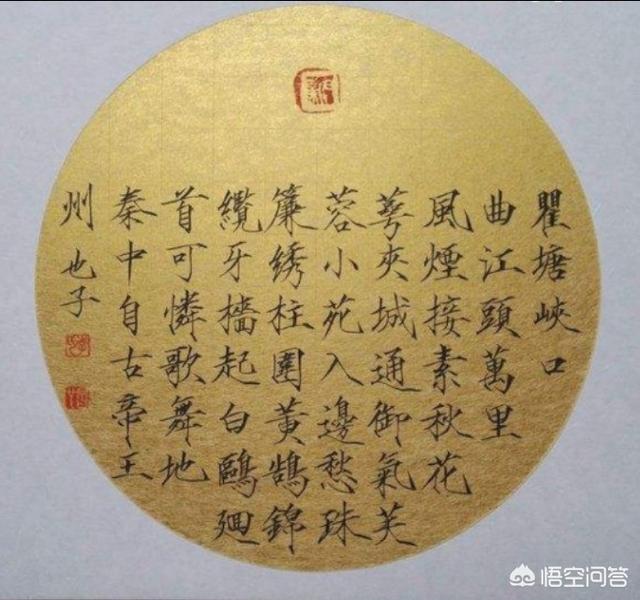 瞿塘峽口
曲江頭萬里
風煙接素秋花
萼夾城通御氣芙
蓉小苑入邊愁珠
簾綉柱圍黃鵠錦
纜牙檣起白鷗廻
首可憐歌舞地
秦中自古帝王
州 也子
悟空问答